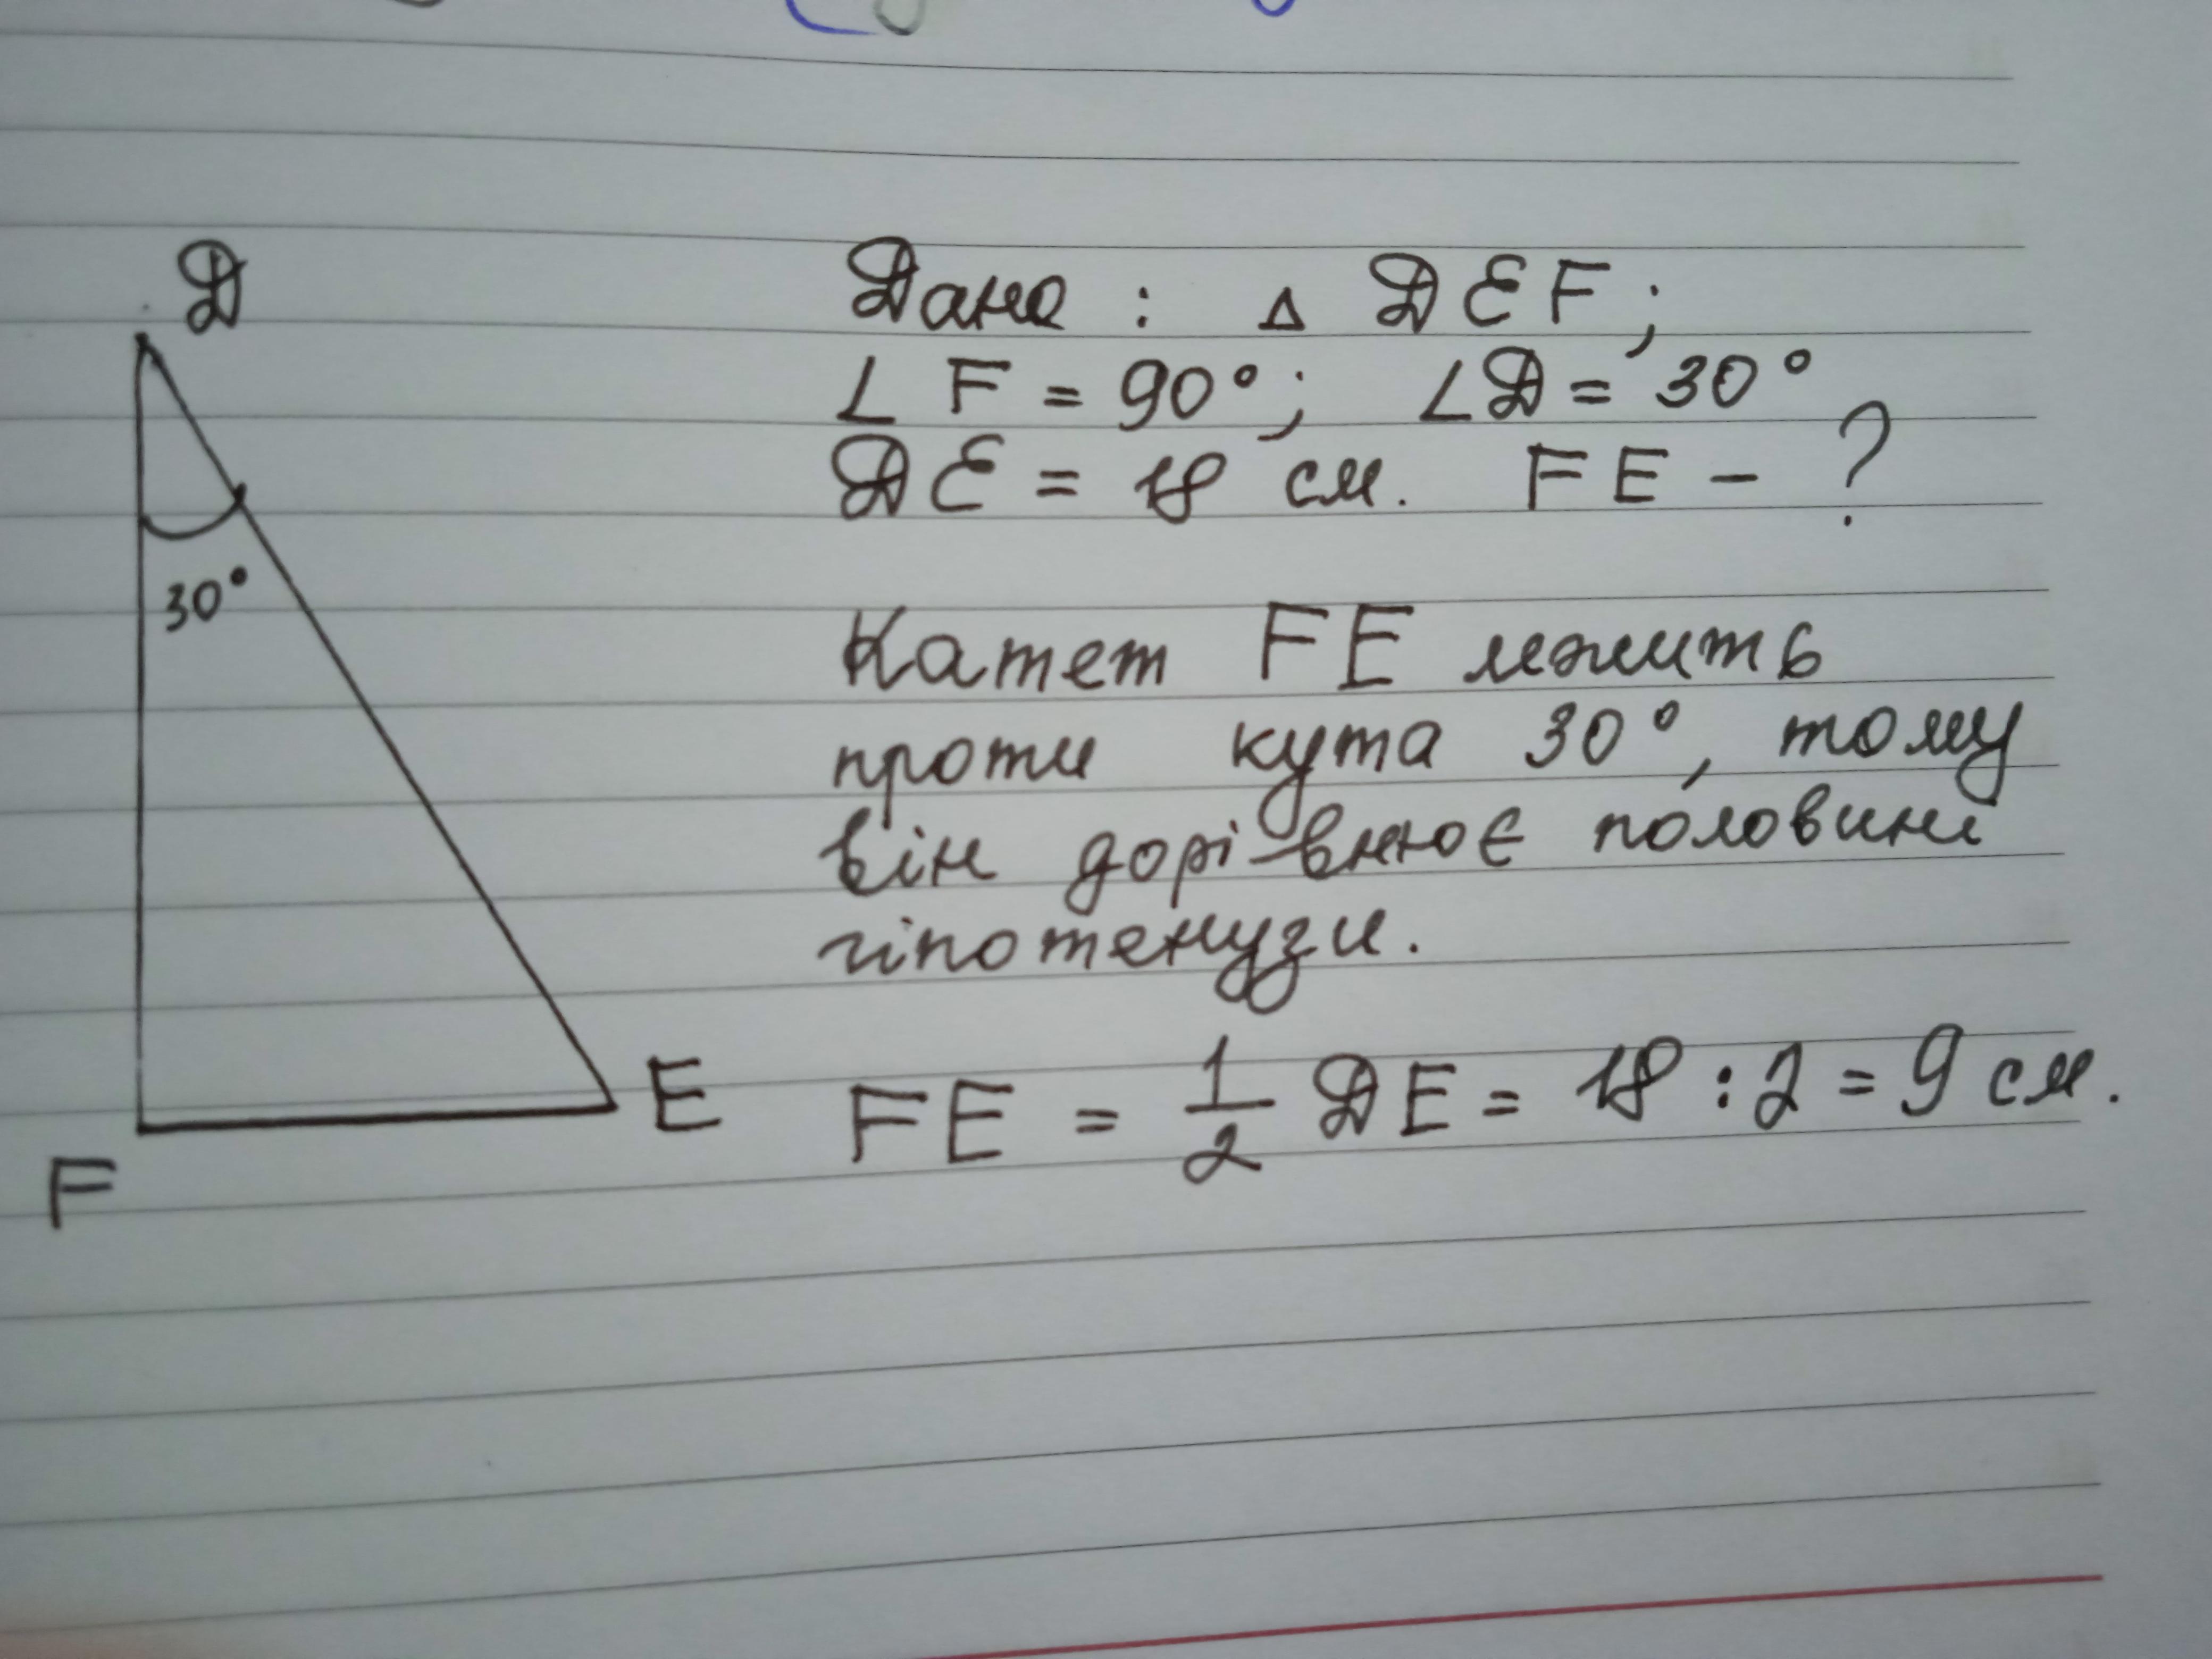 D
30°
F
E
Дано : △ DEF;
∠ F = 90°; ∠D = 30°
DE = 18 см. FE - ?
Катет FE лежить
проти кута 30°, тому
він дорівнює половині
гіпотенузи.
FE = 1/2 DE = 18 : 2 = 9 см.